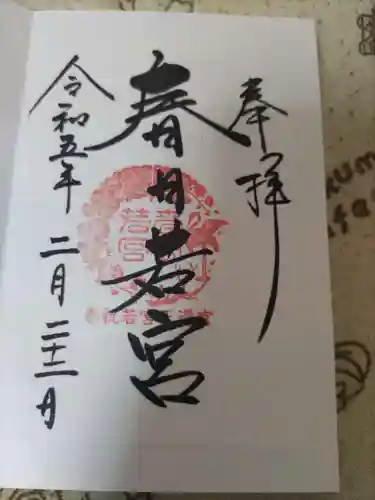 奉拝
春日若宮
令和五年 二月 二十二日